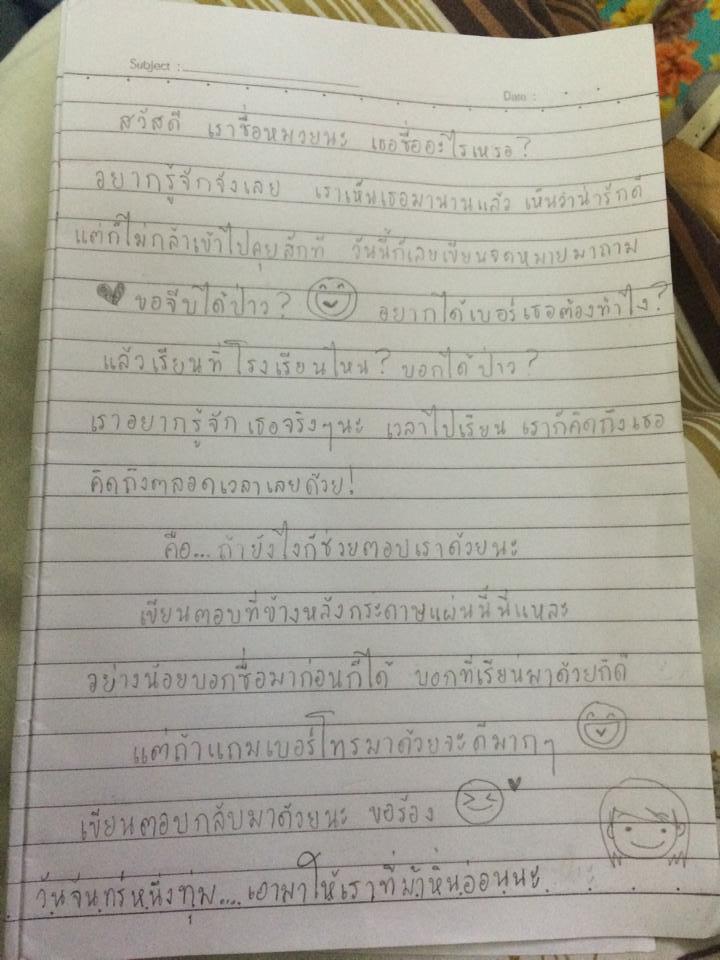 Subject :
Date :
สวัสดี เราชื่อหมวยนะ เธอชื่ออะไรเหรอ?
อยากรู้จักจังเลย เราเห็นเธอมานานแล้ว เห็นว่าน่ารักดี
แต่ก็ไม่กล้าเข้าไปคุยสักที วันนี้ก็เลยเขียนจดหมายมาถาม
ขอจีบได้ป่าว? อยากได้เบอร์เธอต้องทำไง?
แล้วเรียนที่โรงเรียนไหน? บอกได้ป่าว?
เราอยากรู้จักเธอจริงๆนะ เวลาไปเรียน เราก็คิดถึงเธอ
คิดถึงตลอดเวลาเลยด้วย!
คือ... ถ้ายังไงก็ช่วยตอบเราด้วยนะ
เขียนตอบที่ข้างหลังกระดาษแผ่นนี้นี่แหละ
อย่างน้อยบอกชื่อมาก่อนก็ได้ บอกที่เรียนมาด้วยก็ดี
แต่ถ้าแถมเบอร์โทรมาด้วยจะดีมากๆ
เขียนตอบกลับมาด้วยนะ ขอร้อง
วันจันทร์หนึ่งทุ่ม.... เอามาให้เราที่ม้าหินอ่อนนะ